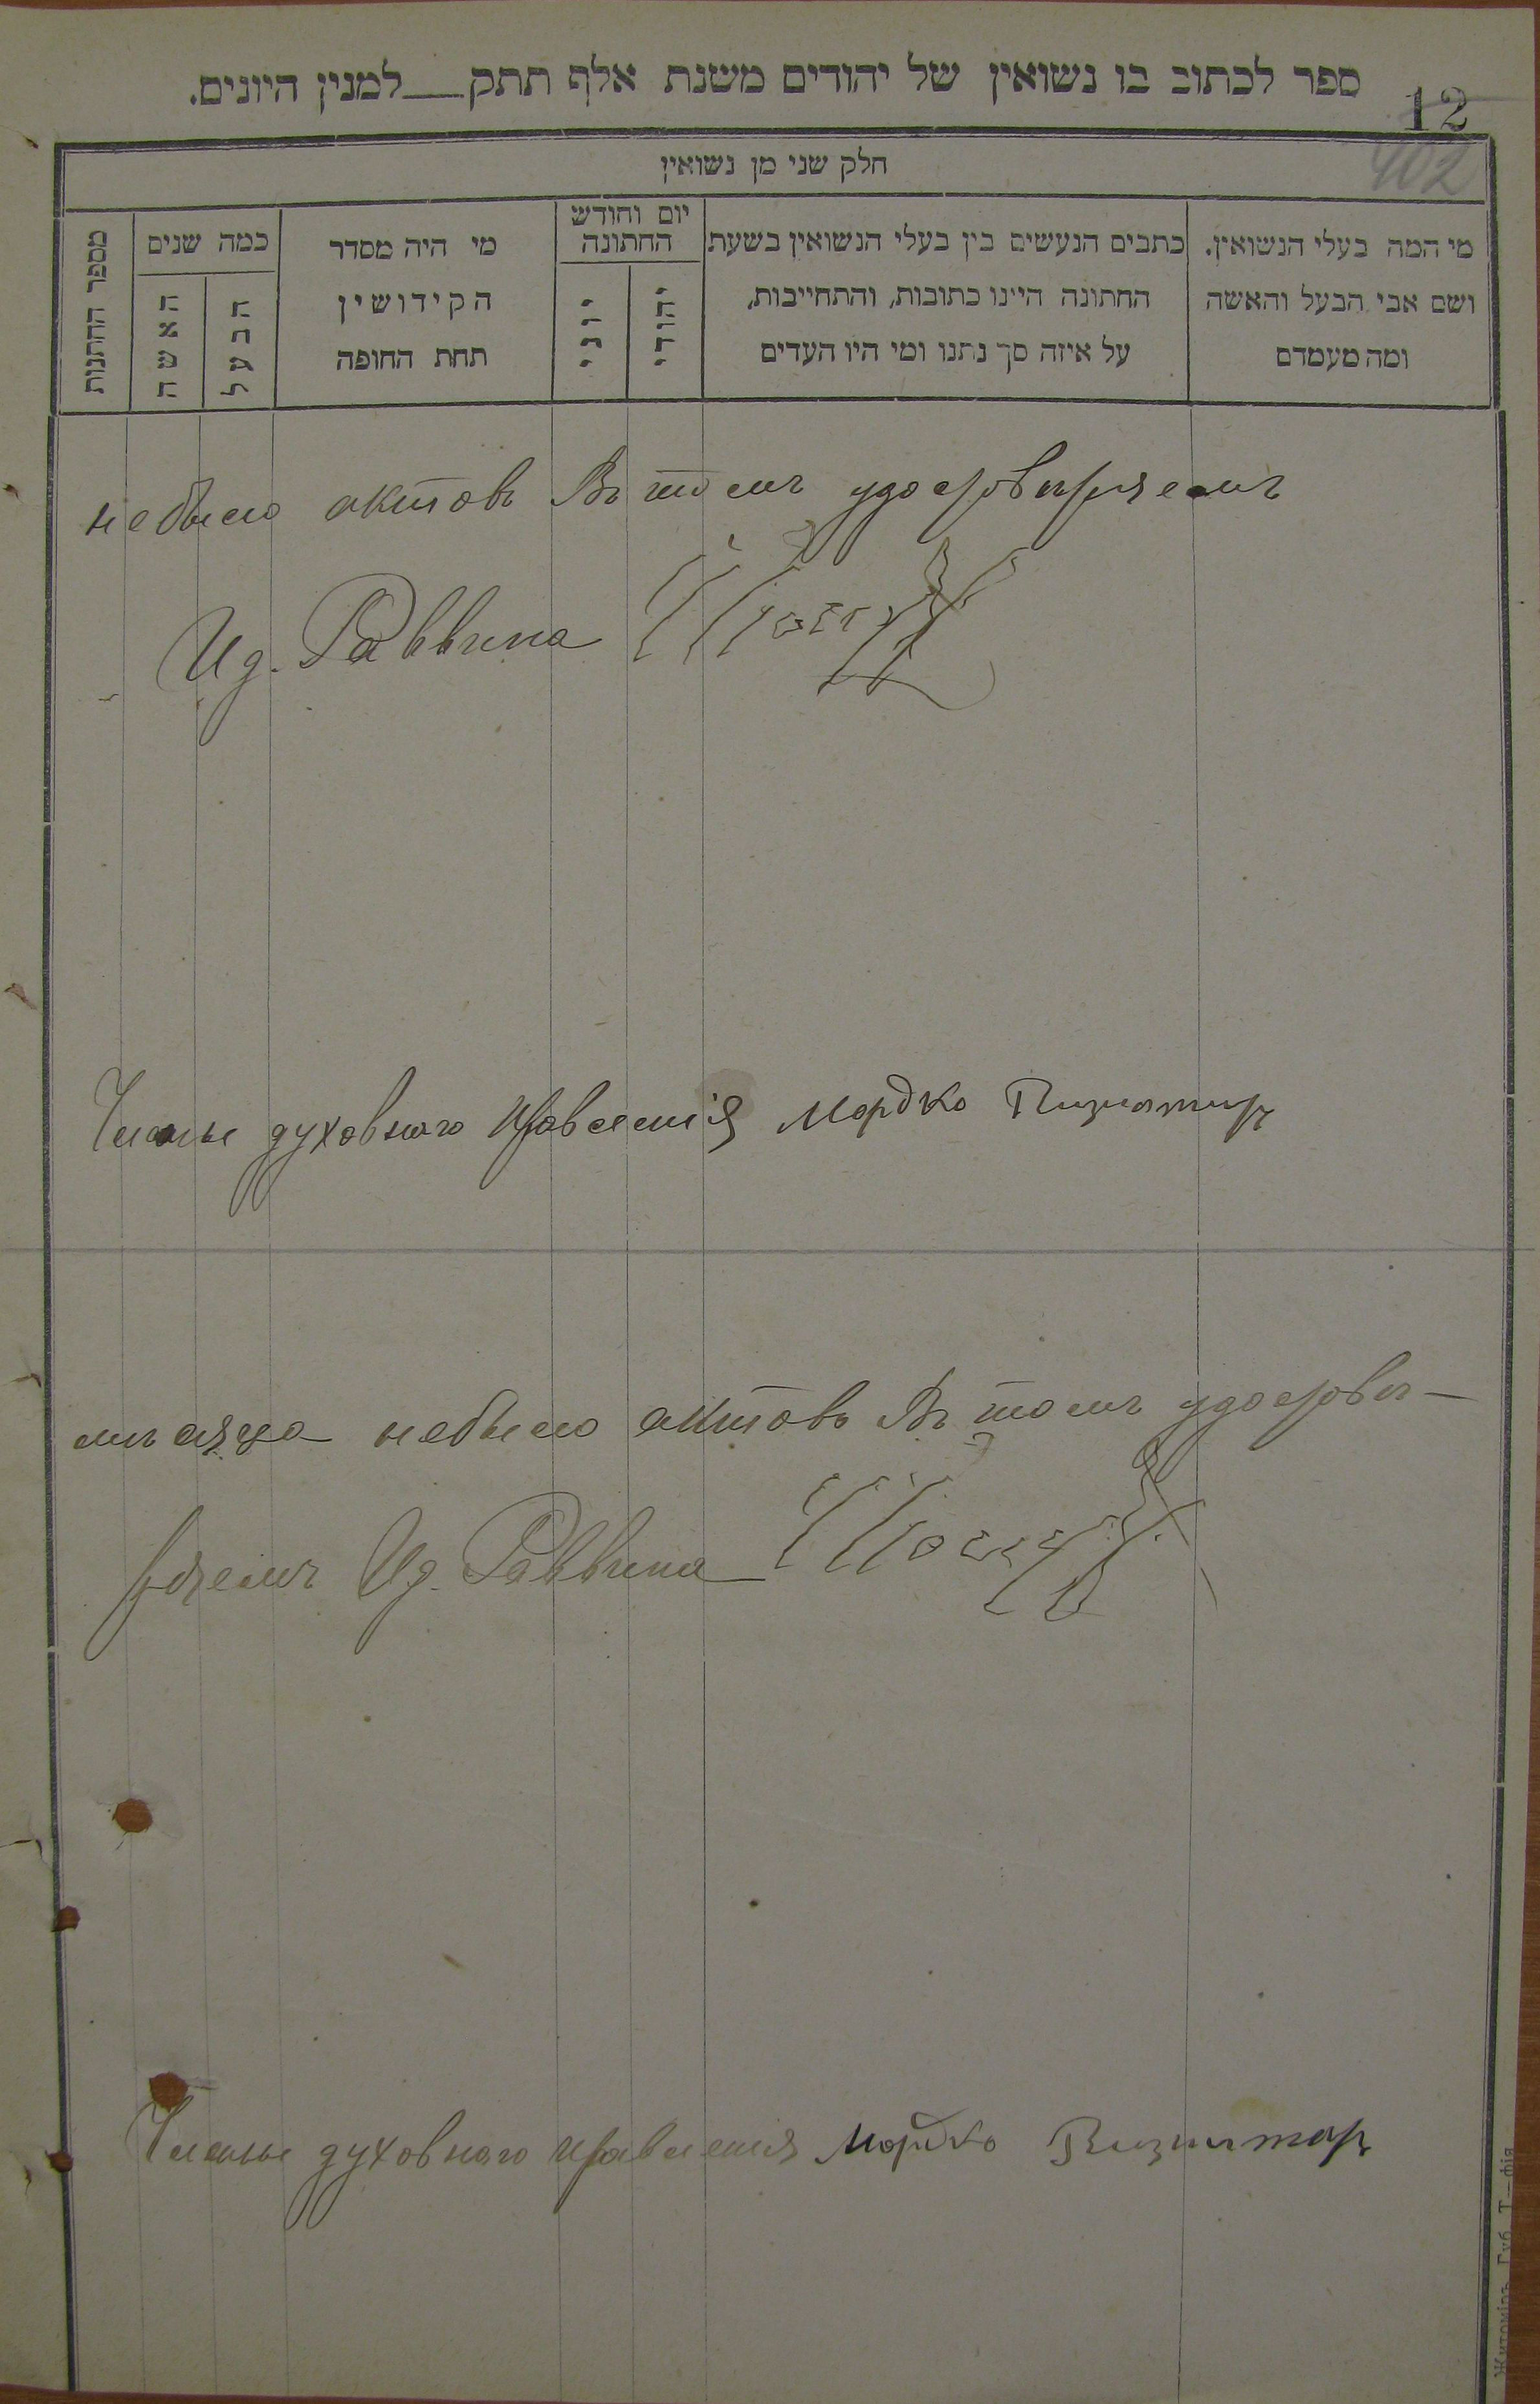 ספר לכתוב בו נשואין של יהודים משנת אלף תתק__למנין היונים.
12
402
חלק שני מן נשואין
מי המה בעלי הנשואין.
ושם אבי הבעל והאשה
ומה מעמדם
כתבים הנעשים בין בעלי הנשואין בשעת
החתונה היינו כתובות, והתחייבות,
על איזה סך נתנו ומי היו העדים
יום וחודש
החתונה
יהודי
יוני
מי היה מסדר
הקידושין
תחת החופה
כמה שנים
הבעל
האשה
מספר החתנות
небыло актовъ Въ томъ удостовѣряемъ
Ид. Раввина
Члены духовнаго Правленія Мордко Визитир
мѣсяца небыло актовъ Въ томъ удостовѣ-
ряемъ Ид. Раввина
Члены духовнаго правленія Мордко Визитар
Житомiръ. Губ. Т—фiя